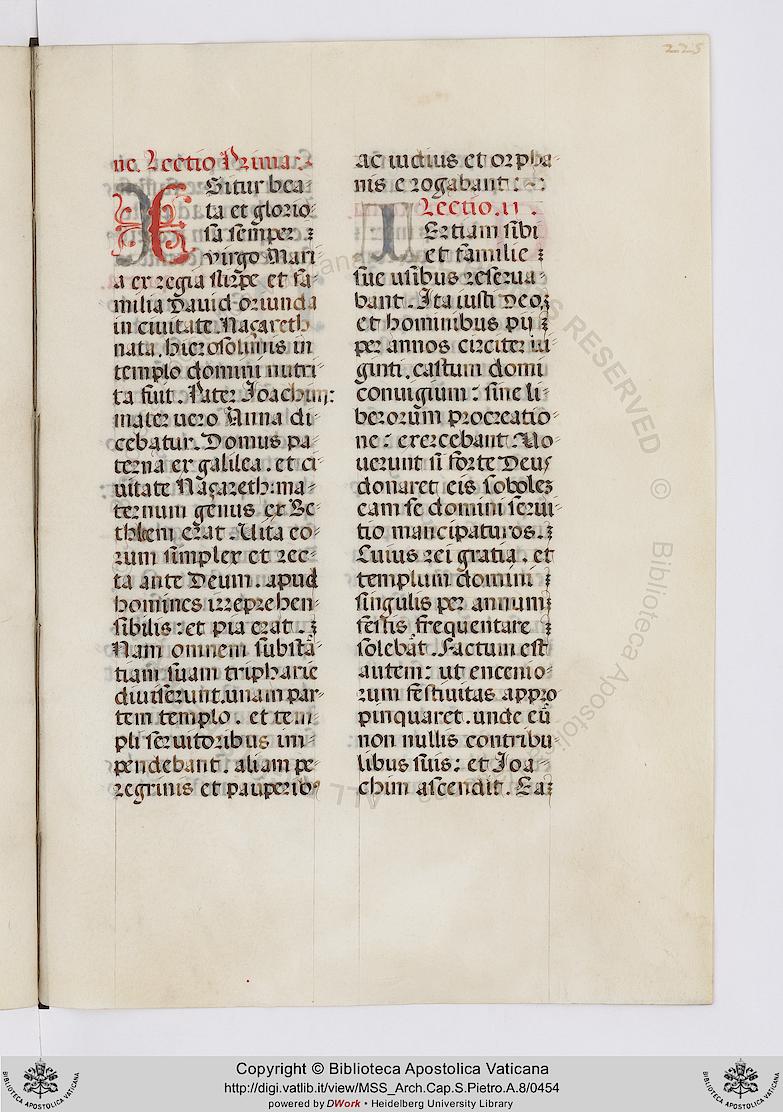 225
ne. Lectio Prima.
Gitur bea-
ta et glorio-
sa semper
virgo Mari-
a ex regia stirpe et fa-
milia David oriunda
in civitate Naçareth
nata. hierosolimis in
templo domini nutri-
ta fuit. Pater Joachim:
mater uero Anna di-
cebatur. Domus pa-
terna ex galilea. et ci-
uitate Naçareth: ma-
ternum genus ex Be-
thleem erat. Uita eo-
rum simplex et rec-
ta ante Deum. apud
homines irreprehen-
sibilis: et pia erat.
Nam omnem substā-
tiam suam tripharie
diuiserunt. unam par-
tem templo. et tem-
pli seruitoribus im-
pendebant. aliam pe-
regrinis et pauperibꝰ
ac uiduis et orpha-
nis erogabant:
Lectio. ii.
Ertiam sibi
et familie
sue usibus reserua-
bant. Ita iusti Deo
et hominibus pij
per annos circiter ui-
ginti. castum domi
coniugium: sine li-
berorum procreatio-
ne: exercebant. Uo-
uerunt si forte Deus
donaret eis sobolez
eam se domini serui-
tio mancipaturos.
Cuius rei gratia. et
templum domini
singulis per annum
festis frequentare
solebāt. Factum est
autem: ut encenio-
rum festiuitas appro-
pinquaret. unde cū
non nullis contribu-
libus suis: et Joa-
chim ascendit. Ea
ALL RIGHTS RESERVED © Biblioteca Apostolica Vaticana
BIBLIOTECA APOSTOLICA VATICANA
Copyright © Biblioteca Apostolica Vaticana
http://digi.vatlib.it/view/MSS_Arch.Cap.S.Pietro.A.8/0454
powered by DWork • Heidelberg University Library
BIBLIOTECA APOSTOLICA VATICANA